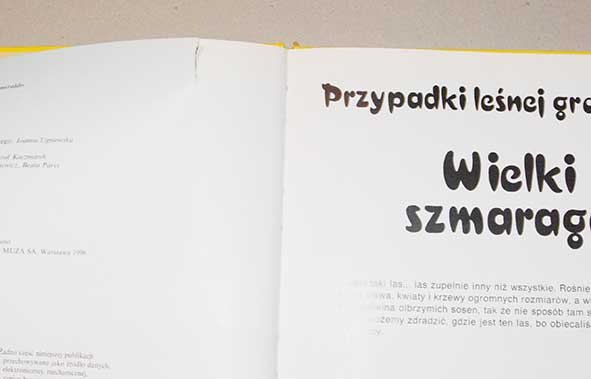 Joanna Lipniewska
Kaczmarek
Beata Parys
MUZA SA, Warszawa 1996
Żadna część niniejszej publikacji
przechowywana jako źródło danych,
elektronicznej, mechanicznej,
Przypadki leśnej gro
Wielki
szmarag
taki las... las zupełnie inny niż wszystkie. Rośnie
kwiaty i krzewy ogromnych rozmiarów, a w
olbrzymich sosen, tak że nie sposób tam s
możemy zdradzić, gdzie jest ten las, bo obiecaliś